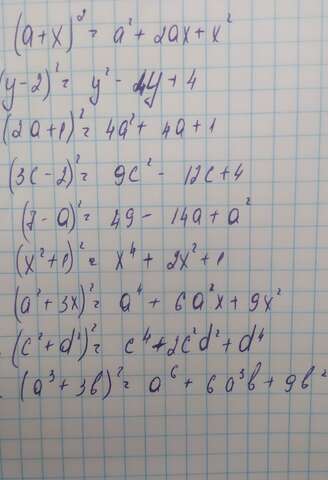 (a+x)² = a² + 2ax + x²
(y-2)² = y² - 4y + 4
(2a+1)² = 4a² + 4a + 1
(3c-2)² = 9c² - 12c + 4
(7-a)² = 49 - 14a + a²
(x²+1)² = x⁴ + 2x² + 1
(a²+3x)² = a⁴ + 6a²x + 9x²
(c²+d²)² = c⁴ + 2c²d² + d⁴
(a³+3b)² = a⁶ + 6a³b + 9b²